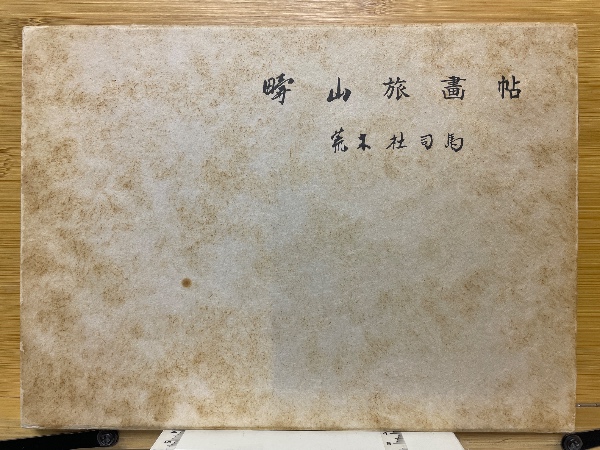 畴山旅畫帖
荒木杜司馬